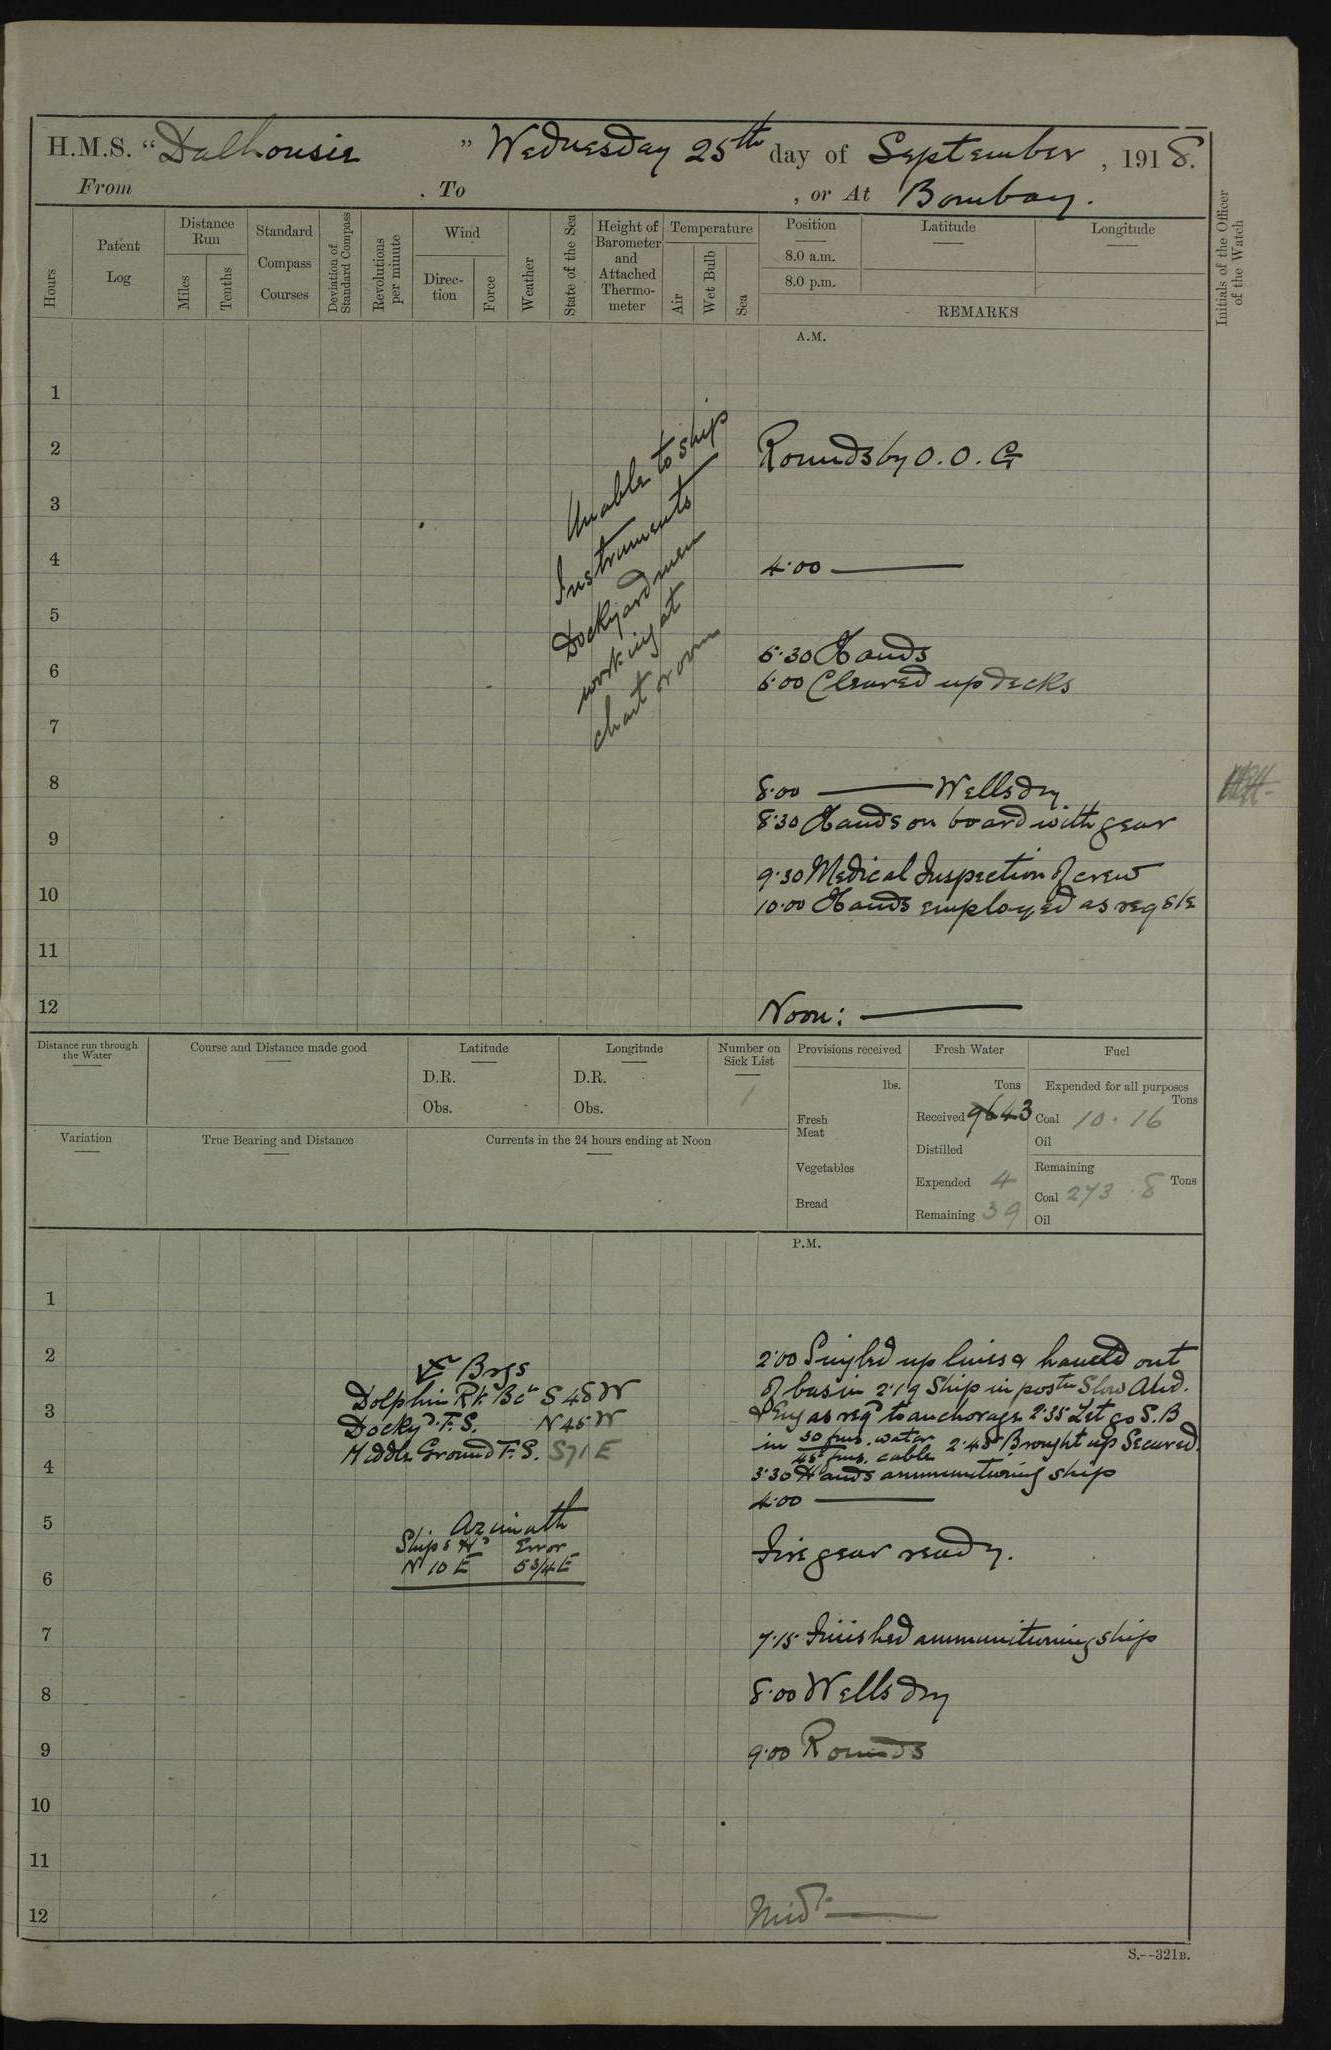 H.M.S. “Dalhousie ” Wednesday 25th day of September, 1918.
From . To , or At Bombay.
Hours
Patent Log
Distance Run
Miles
Tenths
Standard Compass Courses
Deviation of Standard Compass
Revolutions per minute
Wind
Direction
Force
Weather
State of the Sea
Height of Barometer and Attached Thermometer
Temperature
Air
Wet Bulb
Sea
Position
8.0 a.m.
8.0 p.m.
Latitude
Longitude
REMARKS
Initials of the Officer of the Watch
A.M.
1
2 Rounds by O. O. G
3
4 4.00 ———
5
6 5.30 Hands
6.00 Cleared up decks
7
8 8.00 ——— Wells dry
8.30 Hands on board with gear
9
9.30 Medical Inspection of crew
10 10.00 Hands employed as reqste
11
12 Noon: ———
Unable to ship
Instruments
Dockyard men
working at
chart room
Distance run through the Water
Course and Distance made good
Latitude
D.R.
Obs.
Longitude
D.R.
Obs.
Number on Sick List
1
Provisions received
lbs.
Fresh Meat
Vegetables
Bread
Fresh Water
Tons
Received 43
Distilled
Expended 4
Remaining 39
Fuel
Expended for all purposes
Tons
Coal 10.16
Oil
Remaining
Tons
Coal 273.8
Oil
Variation
True Bearing and Distance
Currents in the 24 hours ending at Noon
P.M.
1
2 2.00 Singled up lines & hauled out
of basin 2.19 Ship in postn Slow Ahd.
3 & Eng as reqd to anchorage 2.35 Let go S.B
in 30 fms. water
45 fms. cable 2.48 Brought up Secured
4 3.30 Hands ammunitioning ship
4.00 ———
5 Fire gear ready.
6
7 7.15 Finished ammunitioning ship
8 8.00 Wells dry
9 9.00 Rounds
10
11
12 Midt. ———
Brgs
Dolphin Rk. Bcn S 48 W
Dockyd. F.S. N 45 W
Middle Ground F.S. S71E
Azimuth
Ships Hd Error
N 10 E 5 3/4 E
S.--321B.